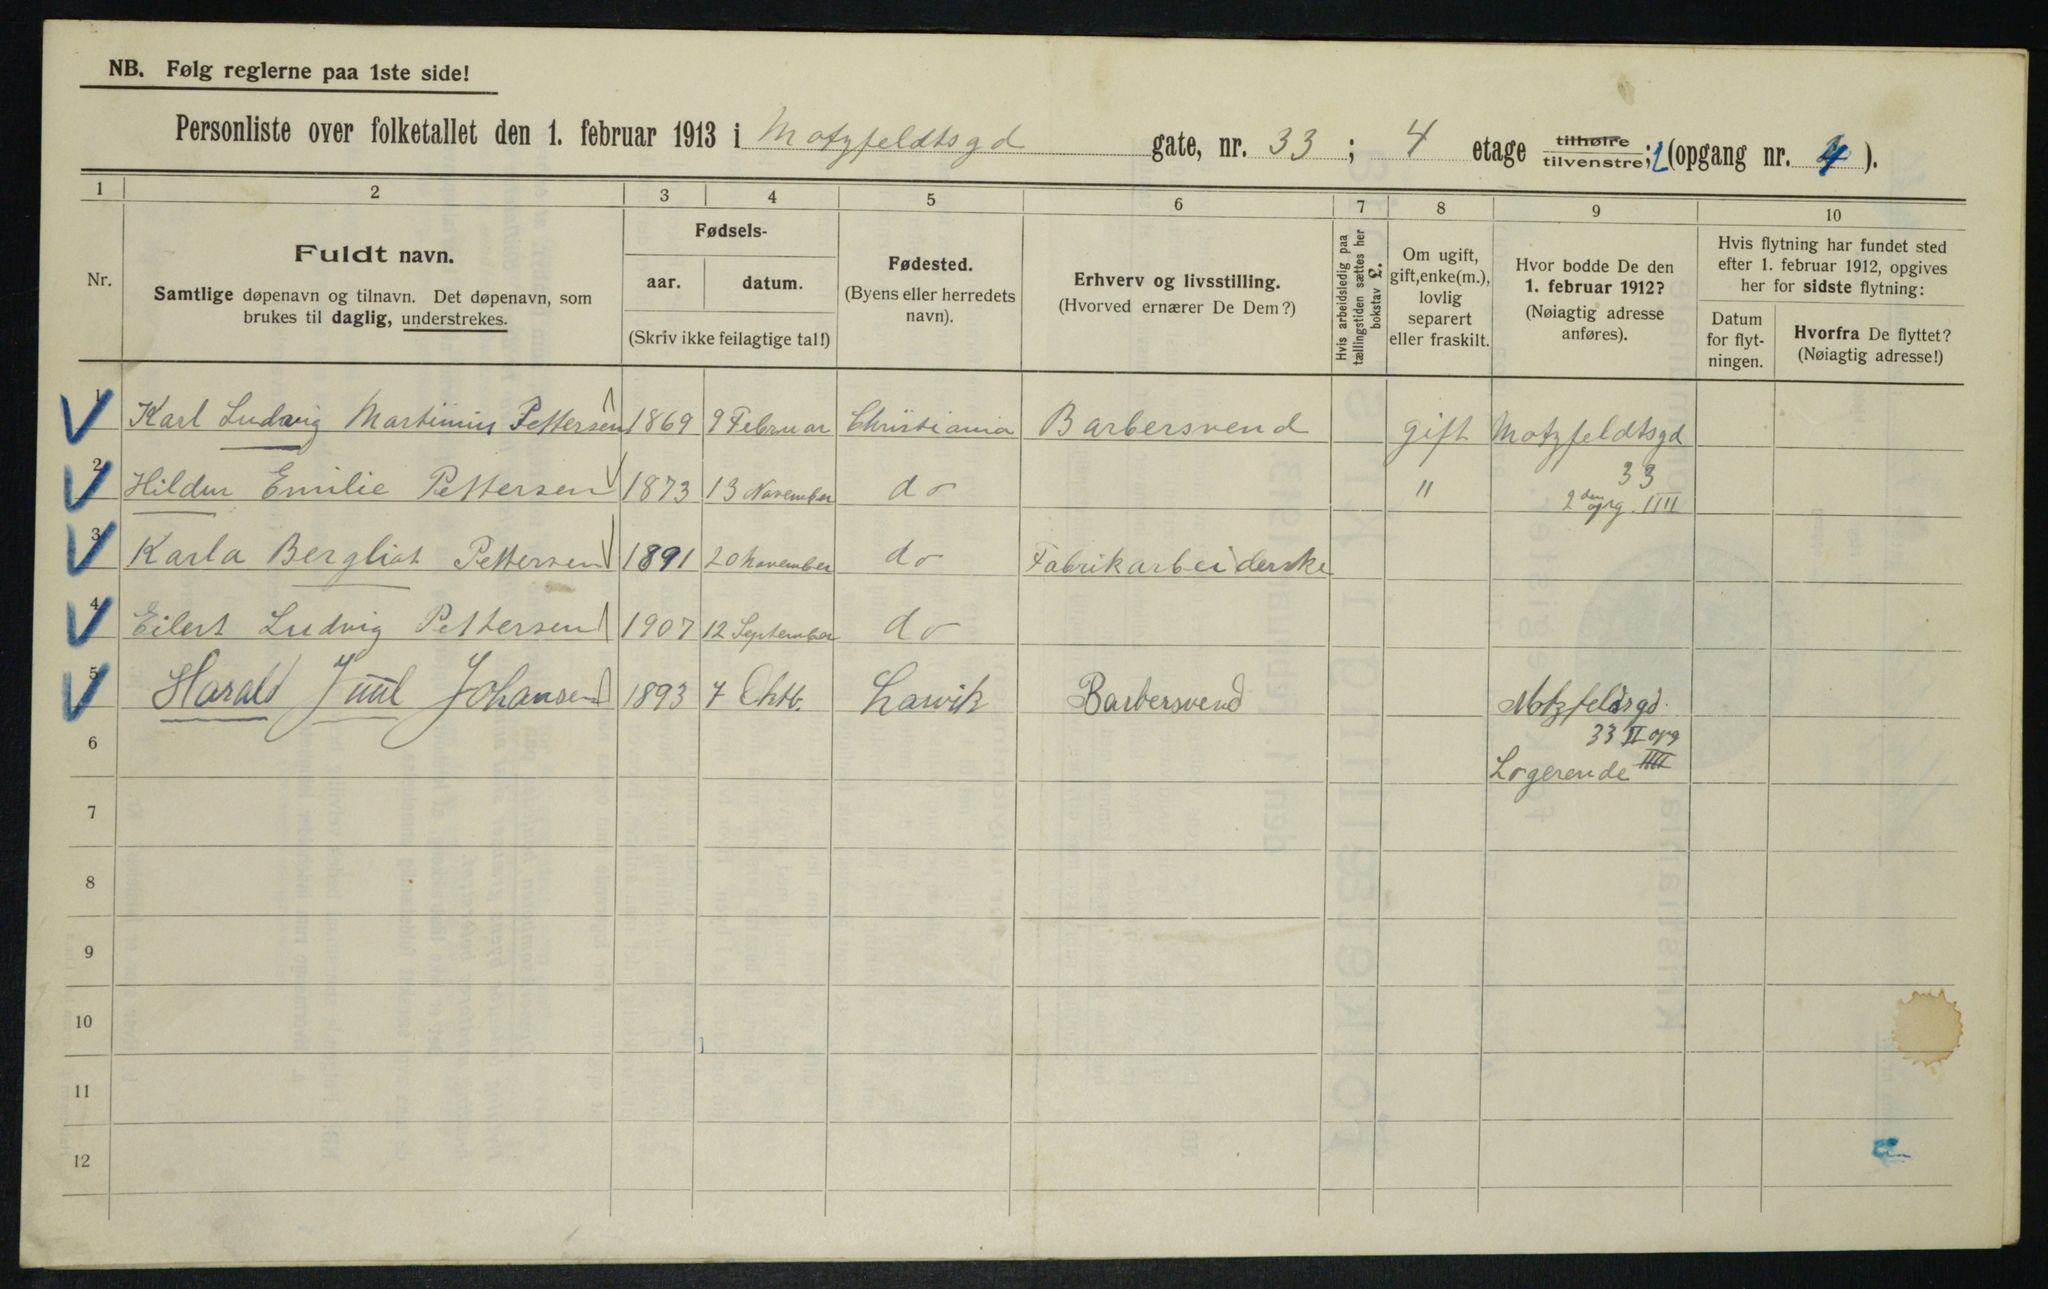 NB. Følg reglerne paa 1ste side!
Personliste over folketallet den 1. februar 1913 i Motzfeldtsgd gate, nr. 33; 4 etage tilhøire tilvenstre; (opgang nr. ).
1 2 3 4 5 6 7 8 9 10
Nr.
Fuldt navn.
Samtlige døpenavn og tilnavn. Det døpenavn, som
brukes til daglig, understrekes.
Fødsels-
aar. datum.
(Skriv ikke feilagtige tal!)
Fødested.
(Byens eller herredets
navn).
Erhverv og livsstilling.
(Hvorved ernærer De Dem?)
Hvis arbeidsledig paa
tællingstiden sættes her
bokstav L.
Om ugift,
gift, enke(m.),
lovlig
separert
eller fraskilt.
Hvor bodde De den
1. februar 1912?
(Nøiagtig adresse
anføres).
Hvis flytning har fundet sted
efter 1. februar 1912, opgives
her for sidste flytning:
Datum
for flyt-
ningen.
Hvorfra De flyttet?
(Nøiagtig adresse!)
1 Karl Ludvig Martinius Pettersen 1869 9 Februar Christiania Barbersvend gift Motzfeldtsgd
33
2 Hildur Emilie Pettersen 1873 13 November do " 2den opg. IIII
3 Karla Bergliot Pettersen 1891 20 November do Fabrikarbeiderske
4 Eilert Ludvig Pettersen 1907 12 September do
5 Harald Juul Johansen 1893 7 Oktb. Larvik Barbersvend Motzfeldsgd.
6 33 II opg
IIII
Logerende
7
8
9
10
11
12